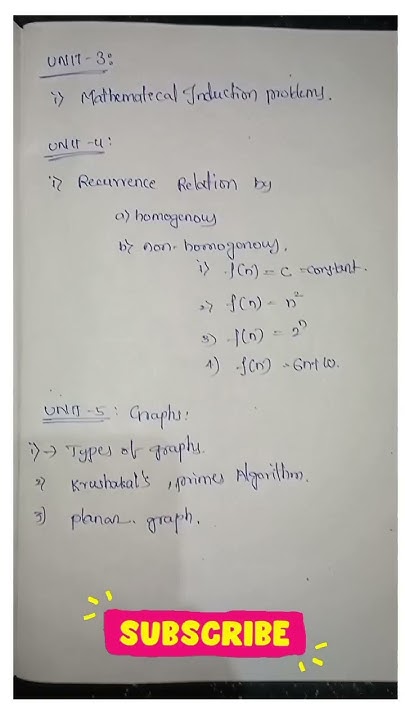 UNIT-3:
i) Mathematecal Induction problems.
UNIT-4:
i) Recurrence Relation by
a) homogenous
b) non-homogenous.
i) f(n) = c =constant.
2) f(n) = n²
3) f(n) = 2ⁿ
4) f(n) = 6n+10.
UNIT-5: Graphs:
i)→ Types of graphs.
2) Krushakal's, primes Algorithm.
3) planar graph.
SUBSCRIBE